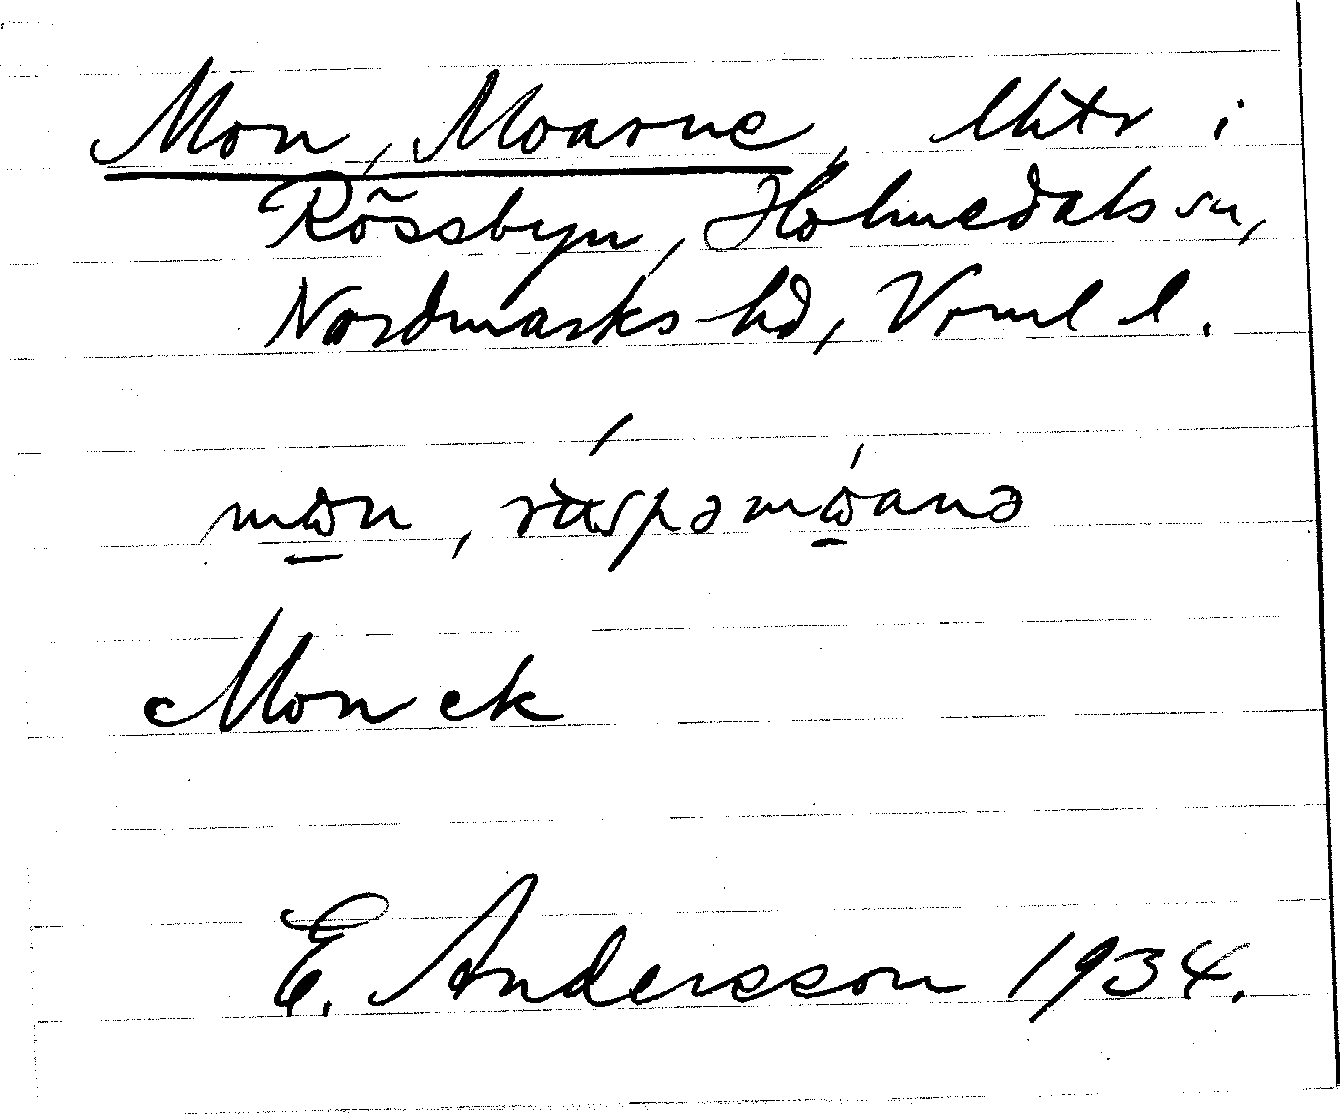 Mon, Moarne, lhtr i
Rössbyn, Holmedals sn,
Nordmarks hd, Vrml l.
mon,
Mon ek
E. Andersson 1934.